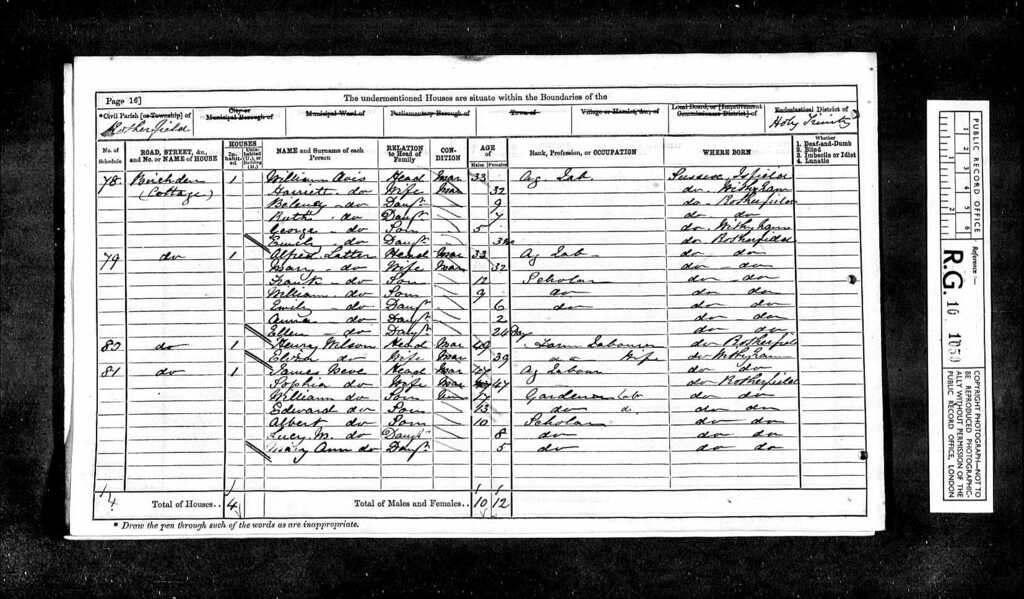 Page 16]
The undermentioned Houses are situate within the Boundaries of the
*Civil Parish [or Township] of
Rotherfield
City or Municipal Borough of
Municipal Ward of
Parliamentary Borough of
Town of
Village or Hamlet, &c., of
Local Board, or [Improvement Commissioners District] of
Ecclesiastical District of
Holy Trinity
No. of Schedule
ROAD, STREET, &c., and No. or NAME of HOUSE
HOUSES
Inhabited
Uninhabited (U.), or Building (B.)
NAME and Surname of each Person
RELATION to Head of Family
CONDITION
AGE of
Males
Females
Rank, Profession, or OCCUPATION
WHERE BORN
Whether
1. Deaf-and-Dumb
2. Blind
3. Imbecile or Idiot
4. Lunatic
78 Birchden 1 William Avis Head Mar 33 Ag Lab. Sussex Isfield
(Cottage) Harriett do Wife Mar 32 do Withyham
do Daur 9 do Rotherfield
Ruth do Daur 7 do do
George do Son 5 do Withyham
Emily do Daur do Rotherfield
79 do 1 Alfred Latter Head Mar 33 Ag Lab do do
Mary do Wife Mar 32 do do
Frank do Son 12 Scholar do do
William do Son 9 do do do
Emily do Daur 6 do do do
Anna do Daur 2 do do
Ellen do Daur do do
80 do 1 Henry Head Mar 49 Farm Labourer do Rotherfield
Eliza do Wife Mar 39 do Wife do Withyham
81 do 1 James Neve Head Mar 47 Ag Labour do do
Sophia do Wife Mar 47 do Rotherfield
William do Son 17 Gardener Lab do do
Edward do Son 13 do do do
Albert do Son 10 Scholar do do
Lucy M. do Daur 8 do do do
Mary Ann do Daur 5 do do do
4 Total of Houses.. 4 Total of Males and Females.. 10 12
* Draw the pen through such of the words as are inappropriate.
PUBLIC RECORD OFFICE
Reference:-
R.G. 10 1050
COPYRIGHT PHOTOGRAPH—NOT TO BE REPRODUCED PHOTOGRAPHICALLY WITHOUT PERMISSION OF THE PUBLIC RECORD OFFICE, LONDON